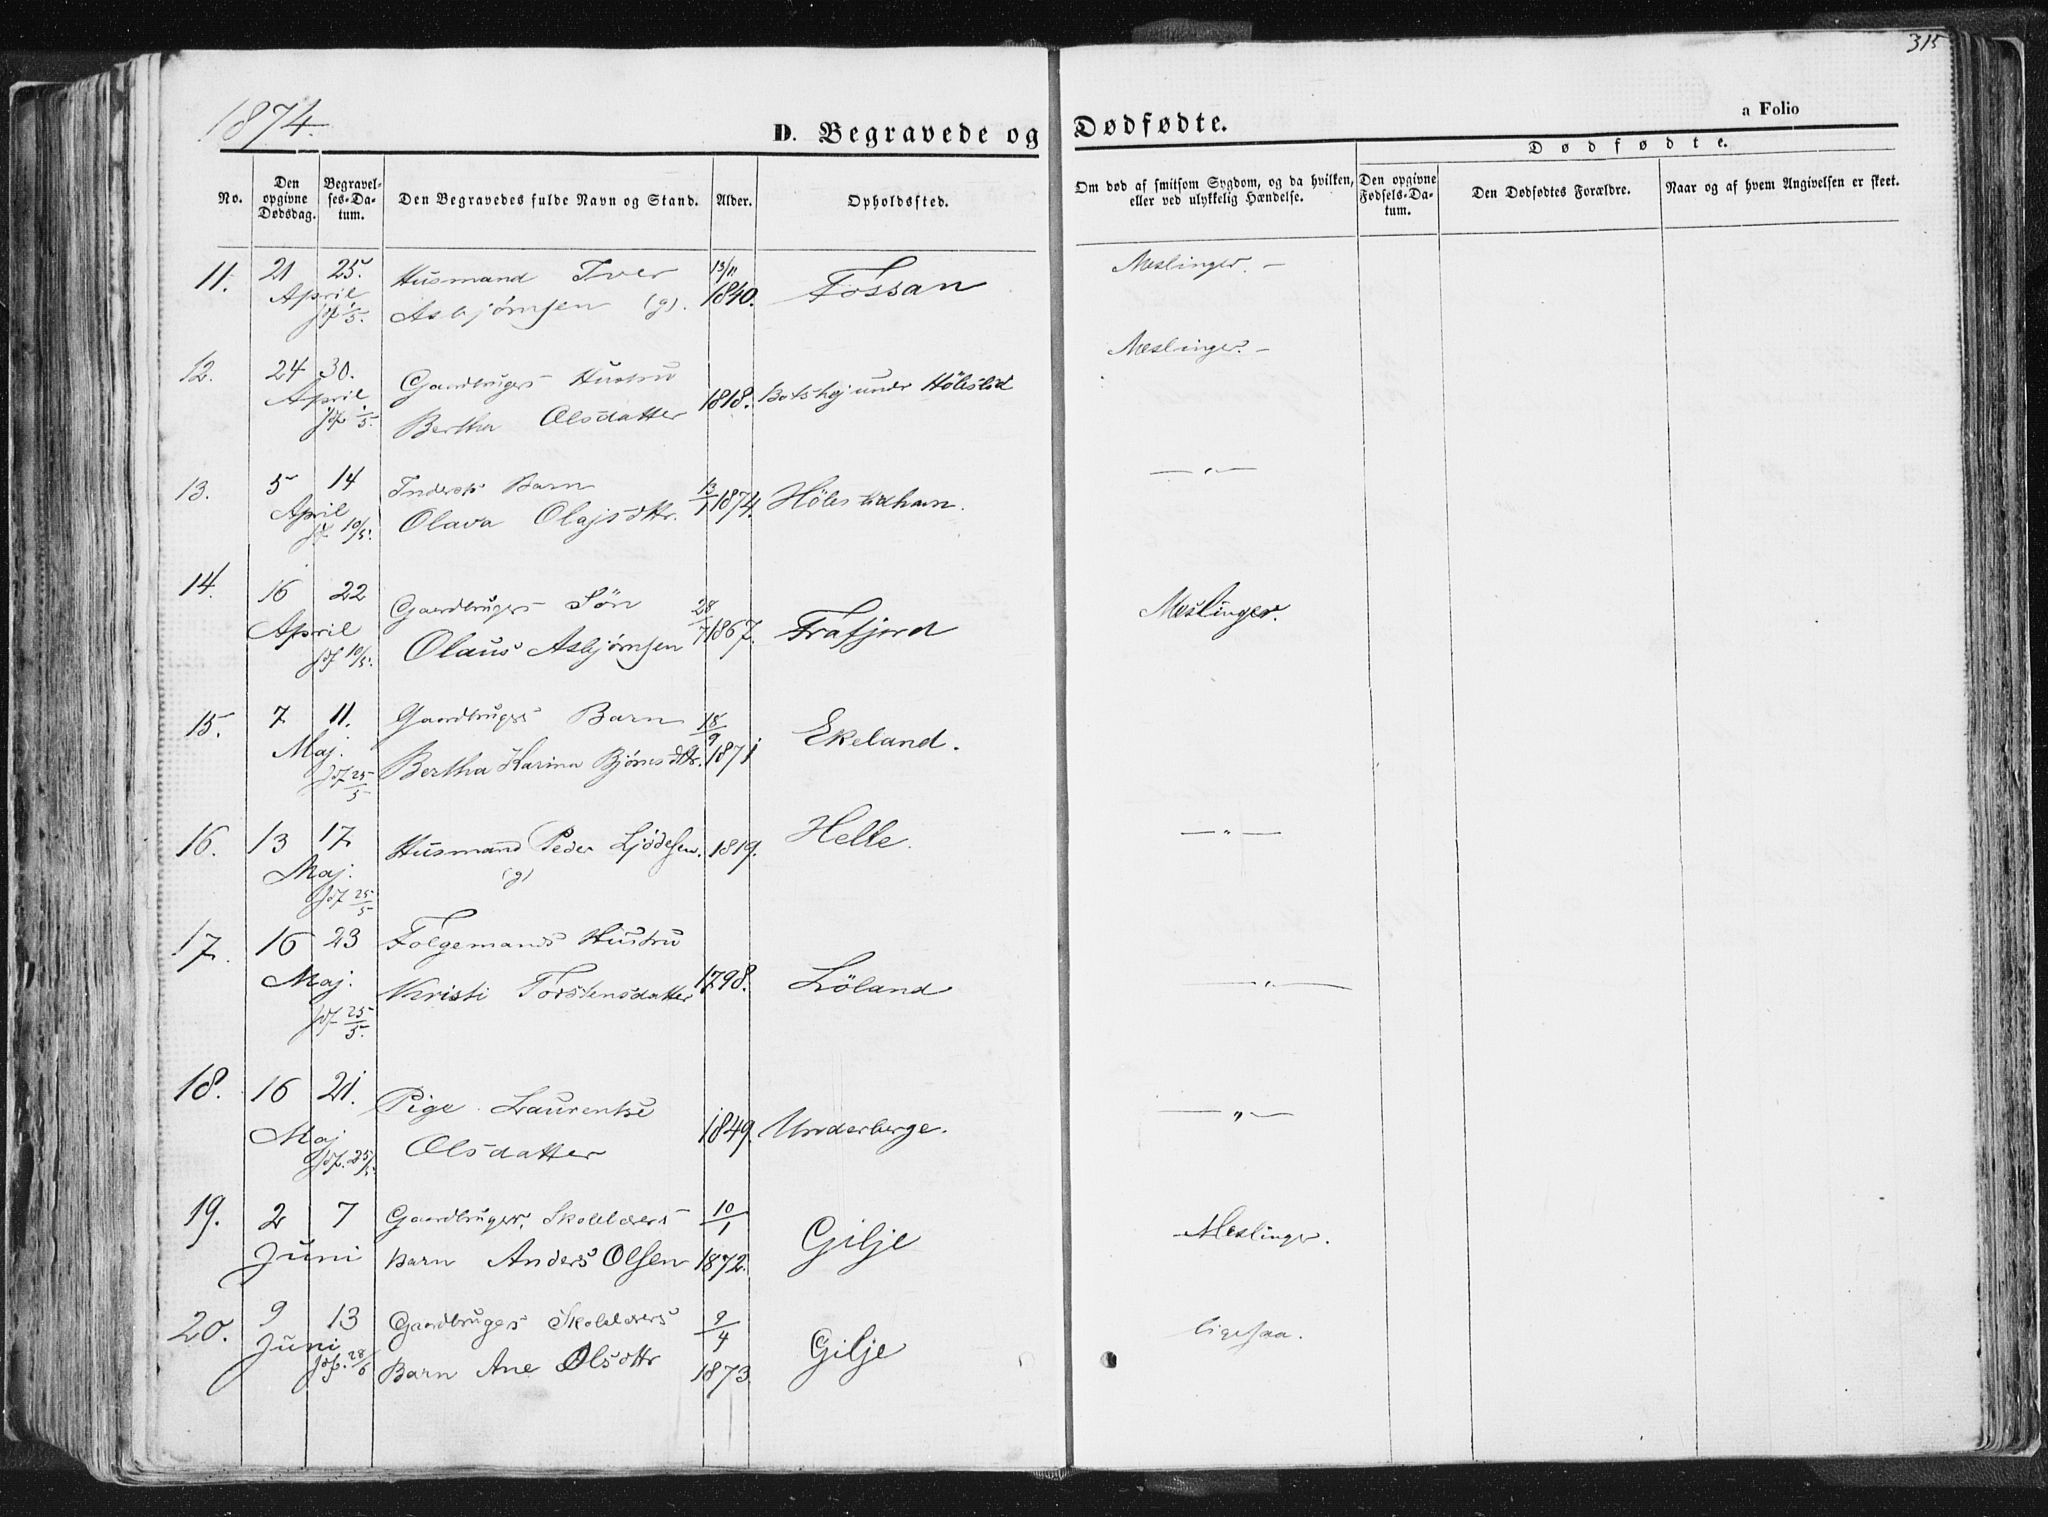 315
1874.
D. Begravede og Dødfødte.
a Folio
No.
Den opgivne Dødsdag.
Begravelses-Datum.
Den Begravedes fulde Navn og Stand.
Alder.
Opholdssted.
Om død af smitsom Sygdom, og da hvilken, eller ved ulykkelig Hændelse.
Dødfødte.
Den opgivne Fødsels-Datum.
Den Dødfødtes Forældre.
Naar og af hvem Angivelsen er skeet.
11. 21 25. Husmand Iver 13/11 Fossan Meslinger. —
April Asbjørnsen (g). 1840.
jdf 1/5.
12. 24 30. Gaardbrugers Hustru Meslinger. —
April Bertha Olsdatter 1818. under Hölestöl
jdf 1/5.
13. 5 14 Indersts Barn 13/1 1874. — „ —
April Olava Olajsdttr.
jdf 10/5.
14. 16 22 Gaardbrugers Sön 28/7 1867. Frafjord Meslinger.
April Olaus Asbjørnsen
jdf 10/5.
15. 7 11. Gaardbrugers Barn 18/9 Ekeland.
Maj. Bertha Karina Bjørnsdttr. 1871
jdf 25/5
16. 13 17 Husmand Peder Ljödesen. 1819. Helle. — „ —
Maj. (g)
jdf 25/5
17. 16 23 Folgemands Hustru
Maj. Kristi Torstensdatter 1798. Löland — „ —
jdf 25/5.
18. 16 21. Pige Laurentse — „ —
Maj Olsdatter 1849. Underberge.
jdf. 25/5.
19. 2 7 Gaardbruger, Skolelærers 10/1 Gilje Meslinger.
Juni Barn Anders Olsen 1872.
20. 9 13 Gaardbrugers Skolelærers 9/4 Gilje ligesaa.
Juni Barn Ane Olsdttr 1873.
jdf. 28/6